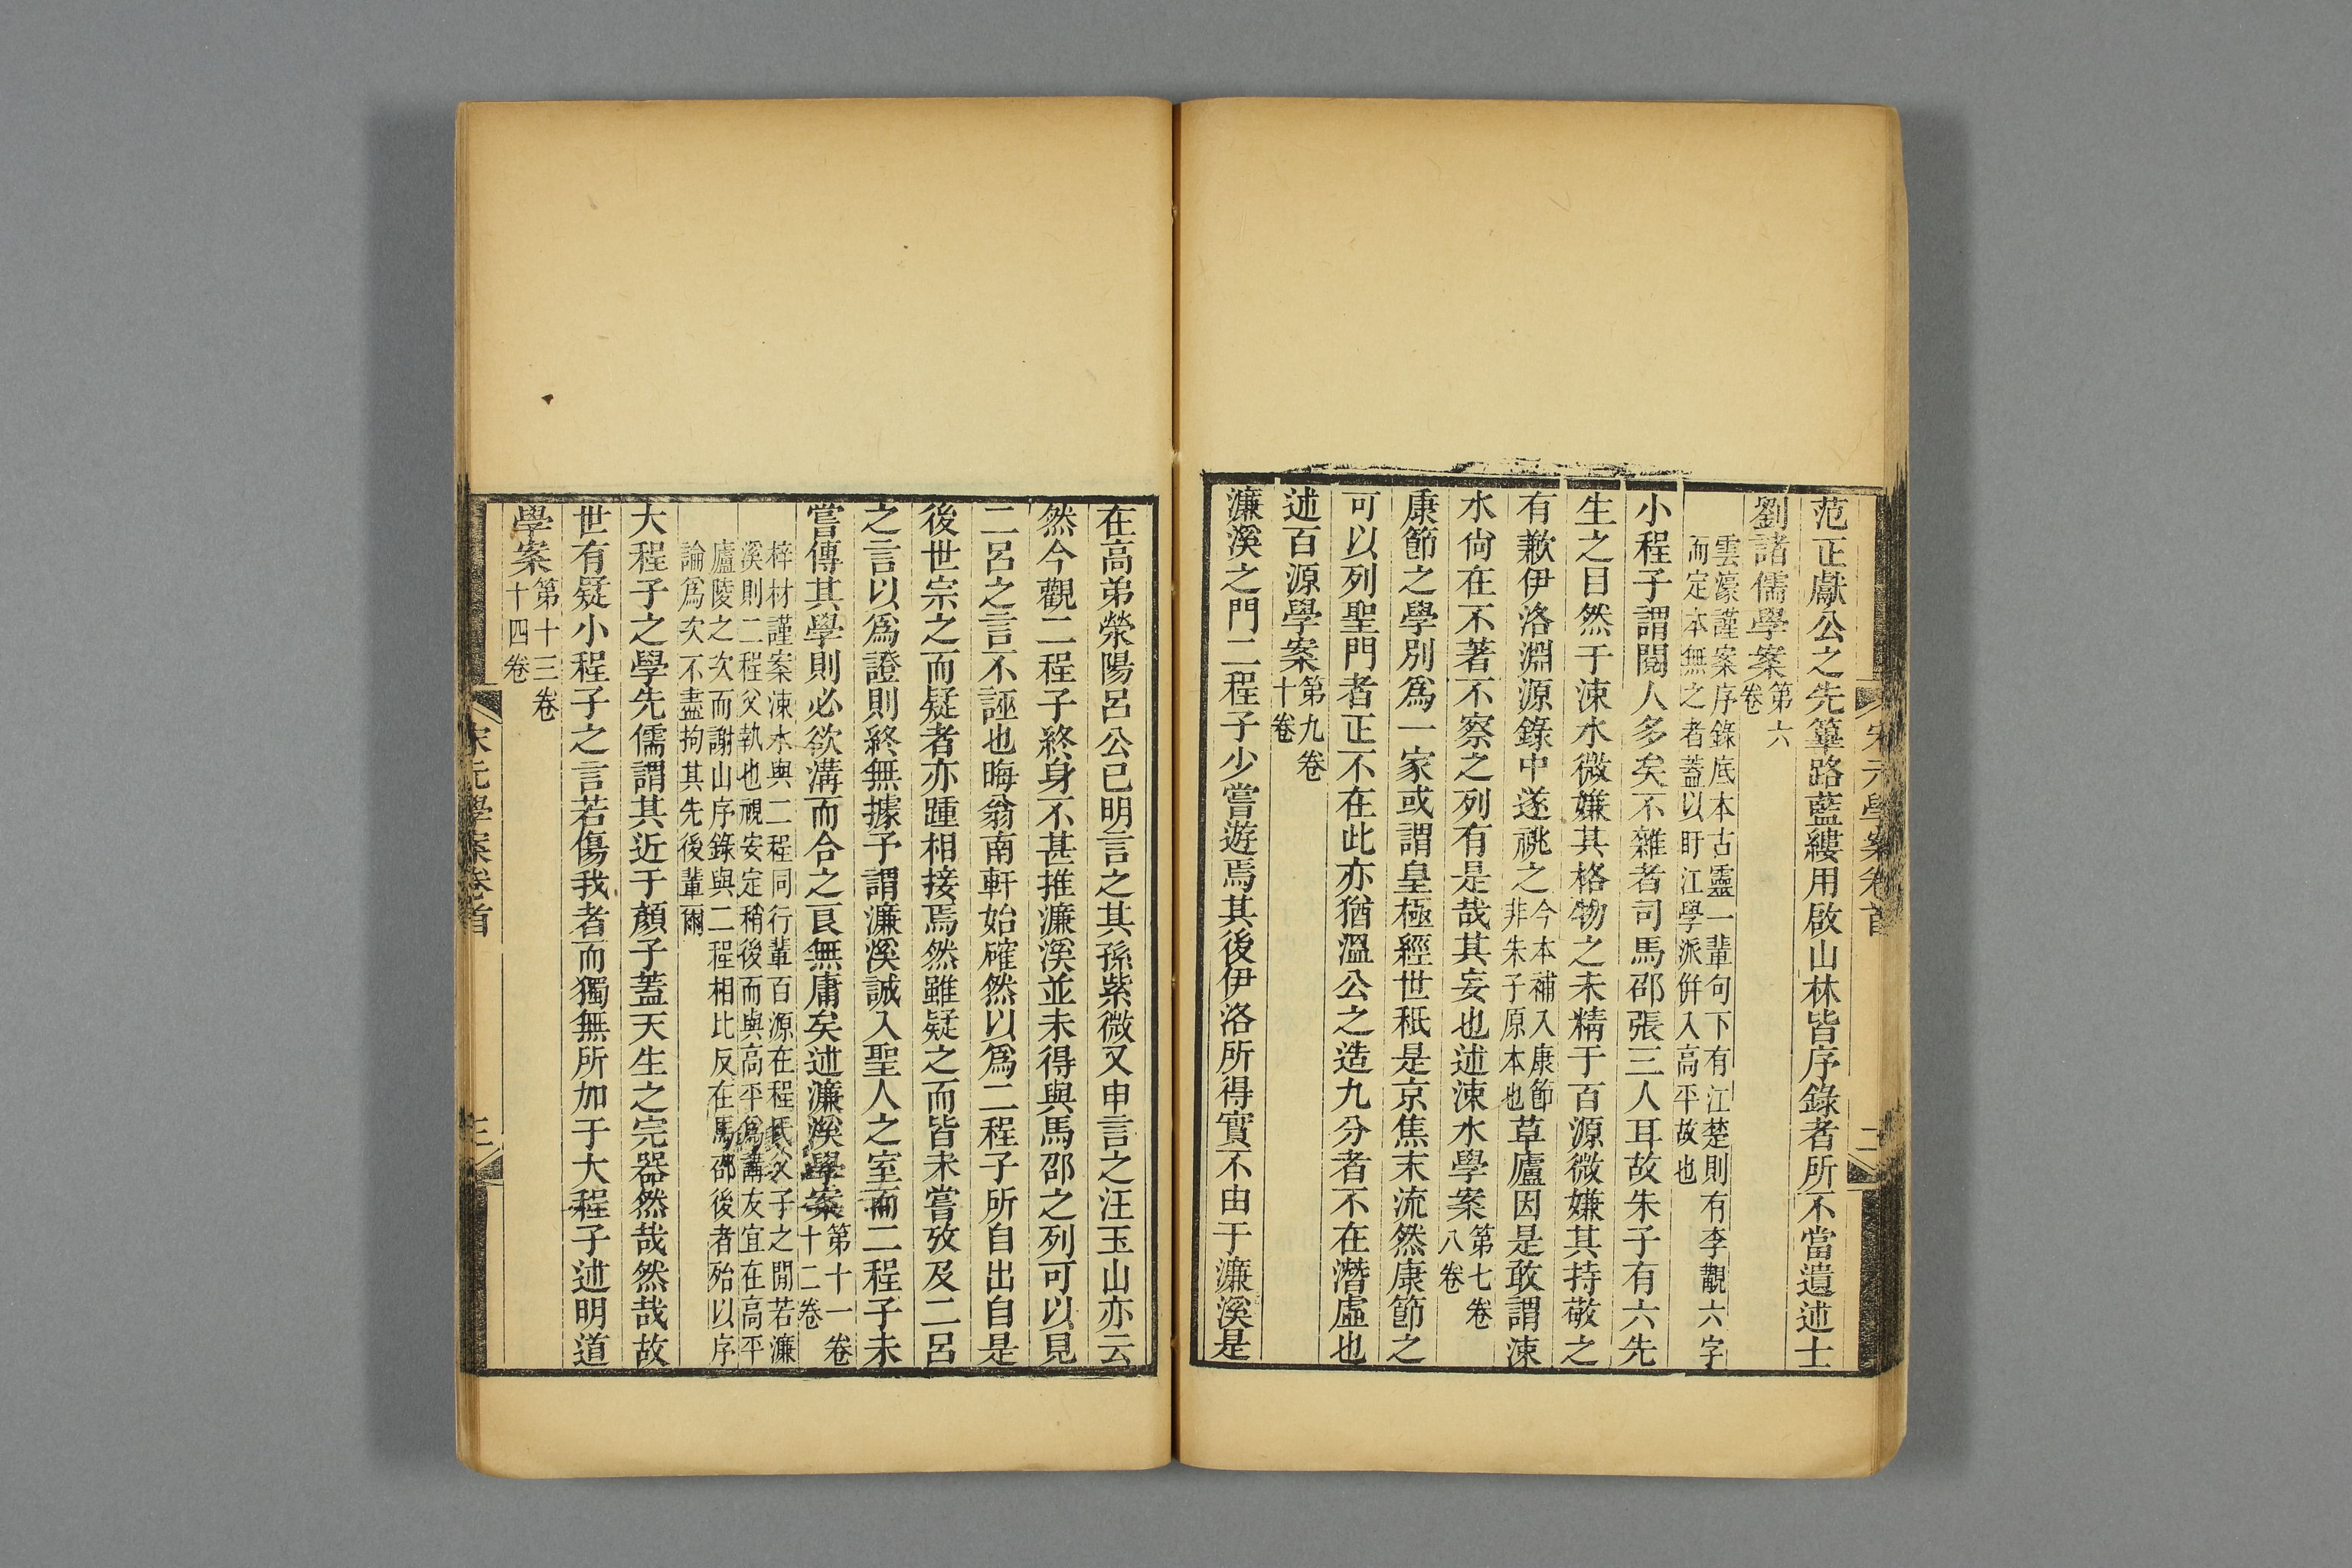 宋元學案卷首
二
范正獻公之先篳路藍縷用啟山林皆序錄者所不當遺述士
劉諸儒學案第六卷
雲濠謹案序錄底本古靈一輩句下有江楚則有李觀六字
而定本無之者蓋以盱江學派倂入高平故也
小程子謂閱人多矣不雜者司馬邵張三人耳故朱子有六先
生之目然于涑水微嫌其格物之未精于百源微嫌其持敬之
有歉伊洛淵源錄中遂祧之今本補入康節非朱子原本也草廬因是敢謂涑
水尙在不著不察之列有是哉其妄也述涑水學案第七卷八卷
康節之學別爲一家或謂皇極經世秖是京焦末流然康節之
可以列聖門者正不在此亦猶溫公之造九分者不在潛虛也
述百源學案第九卷十卷
濂溪之門二程子少嘗遊焉其後伊洛所得實不由于濂溪是
在高弟滎陽呂公已明言之其孫紫微又申言之汪玉山亦云
然今觀二程子終身不甚推濂溪並未得與馬邵之列可以見
二呂之言不誣也晦翁南軒始確然以爲二程子所自出自是
後世宗之而疑者亦踵相接焉然雖疑之而皆未嘗攷及二呂
之言以爲證則終無據予謂濂溪誠入聖人之室而二程子未
嘗傳其學則必欲溝而合之良無庸矣述濂溪學案第十一卷十二卷
梓材謹案涑水與二程同行輩百源在程氏父子之閒若濂
溪則二程父執也視安定稍後而與高平爲講友宜在高平
廬陵之次而謝山序錄與二程相比反在馬邵後者殆以序
論爲次不盡拘其先後輩爾
大程子之學先儒謂其近于顏子蓋天生之完器然哉然哉故
世有疑小程子之言若傷我者而獨無所加于大程子述明道
學案第十三卷十四卷
宋元學案卷首
三